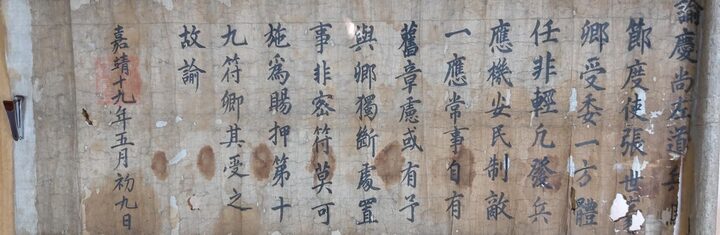 諭慶尚左道兵馬
節度使張世豪
卿受委一方體
任非輕凡發兵
應機安民制敵
一應常事自有
舊章慮或有予
與卿獨斷處置
事非密符莫可
施爲賜押第十
九符卿其受之
故諭
嘉靖十九年五月初九日